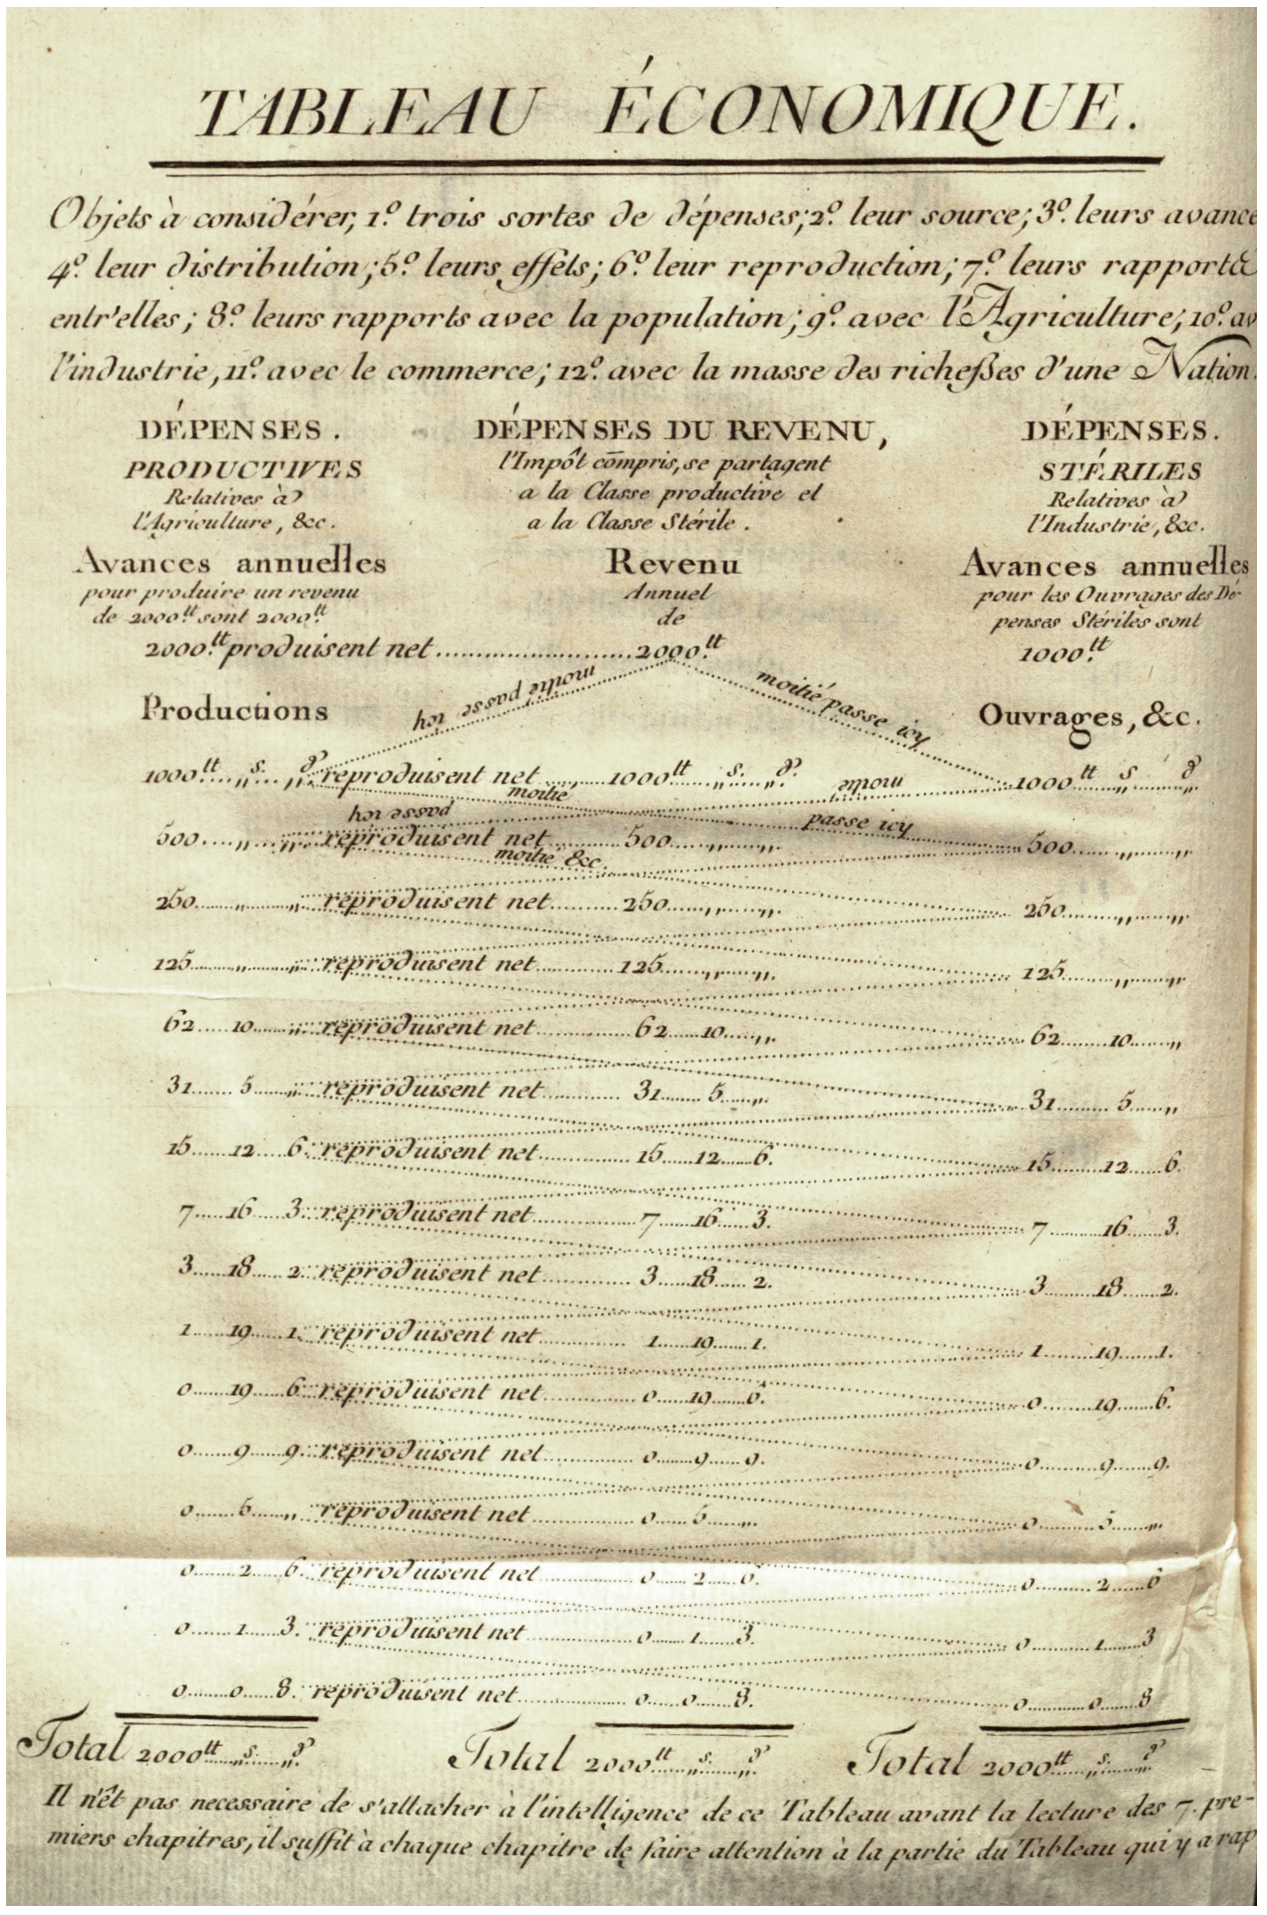 TABLEAU ÉCONOMIQUE.
Objets à considérer, 1.º trois sortes de dépenses; 2.º leur source; 3.º leurs avance
4.º leur distribution; 5.º leurs effets; 6.º leur reproduction; 7.º leurs rapports
entr'elles; 8.º leurs rapports avec la population; 9.º avec l'Agriculture; 10.º av
l'industrie, 11.º avec le commerce; 12.º avec la masse des richesses d'une Nation.
DÉPENSES.
PRODUCTIVES
Relatives à
l'Agriculture, &c.
DÉPENSES DU REVENU,
l'Impôt cōmpris, se partagent
a la Classe productive et
a la Classe Stérile.
DÉPENSES.
STÉRILES
Relatives à
l'Industrie, &c.
Avances annuelles
pour produire un revenu
de 2000.tt sont 2000.tt
Revenu
Annuel
de
Avances annuelles
pour les Ouvrages des Dé-
penses Stériles sont
2000.tt produisent net...........................2000.tt
1000.tt
moitié passe icy
moitié passe icy
Productions
Ouvrages, &c.
1000.tt....„s....„d reproduisent net........1000tt....„s....„d. 1000tt....„s....„d
moitié
moitié
passe icy
passe icy
500....„....„ reproduisent net........500....„....„ 500....„....„
moitié &c.
250....„....„ reproduisent net........250....„....„ 250....„....„
125....„....„ reproduisent net........125....„....„ 125....„....„
62....10....„ reproduisent net........62....10....„ 62....10....„
31....5....„ reproduisent net........31....5....„ 31....5....„
15....12....6. reproduisent net........15....12....6. 15....12....6.
7....16....3. reproduisent net........7....16....3. 7....16....3.
3....18....2. reproduisent net........3....18....2. 3....18....2.
1....19....1. reproduisent net........1....19....1. 1....19....1.
0....19....6. reproduisent net........0....19....6. 0....19....6.
0....9....9. reproduisent net........0....9....9. 0....9....9.
0....5....„ reproduisent net........0....5....„ 0....5....„
0....2....6. reproduisent net........0....2....6. 0....2....6
0....1....3. reproduisent net........0....1....3. 0....1....3
0....0....8. reproduisent net........0....0....8. 0....0....8
Total 2000tt....„s....„d. Total 2000tt....„s....„d. Total 2000tt....„s....„d
Il n'êt pas necessaire de s'attacher à l'intelligence de ce Tableau avant la lecture des 7. pre-
miers chapitres, il suffit à chaque chapitre de faire attention à la partie du Tableau qui y a rap